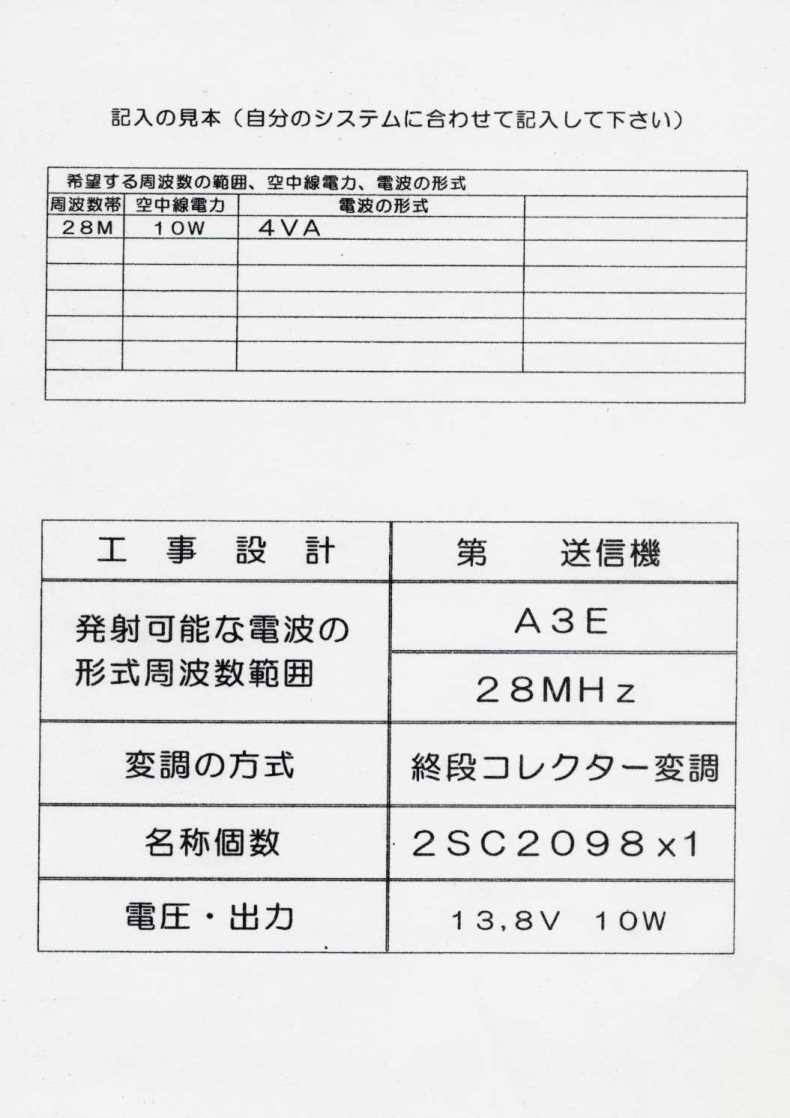 記入の見本（自分のシステムに合わせて記入して下さい）
希望する周波数の範囲、空中線電力、電波の形式
周波数帯 空中線電力 電波の形式
28M 10W 4VA
工事設計 第 送信機
発射可能な電波の
形式周波数範囲
A3E
28MHz
変調の方式 終段コレクター変調
名称個数 2SC2098x1
電圧・出力 13,8V 10W